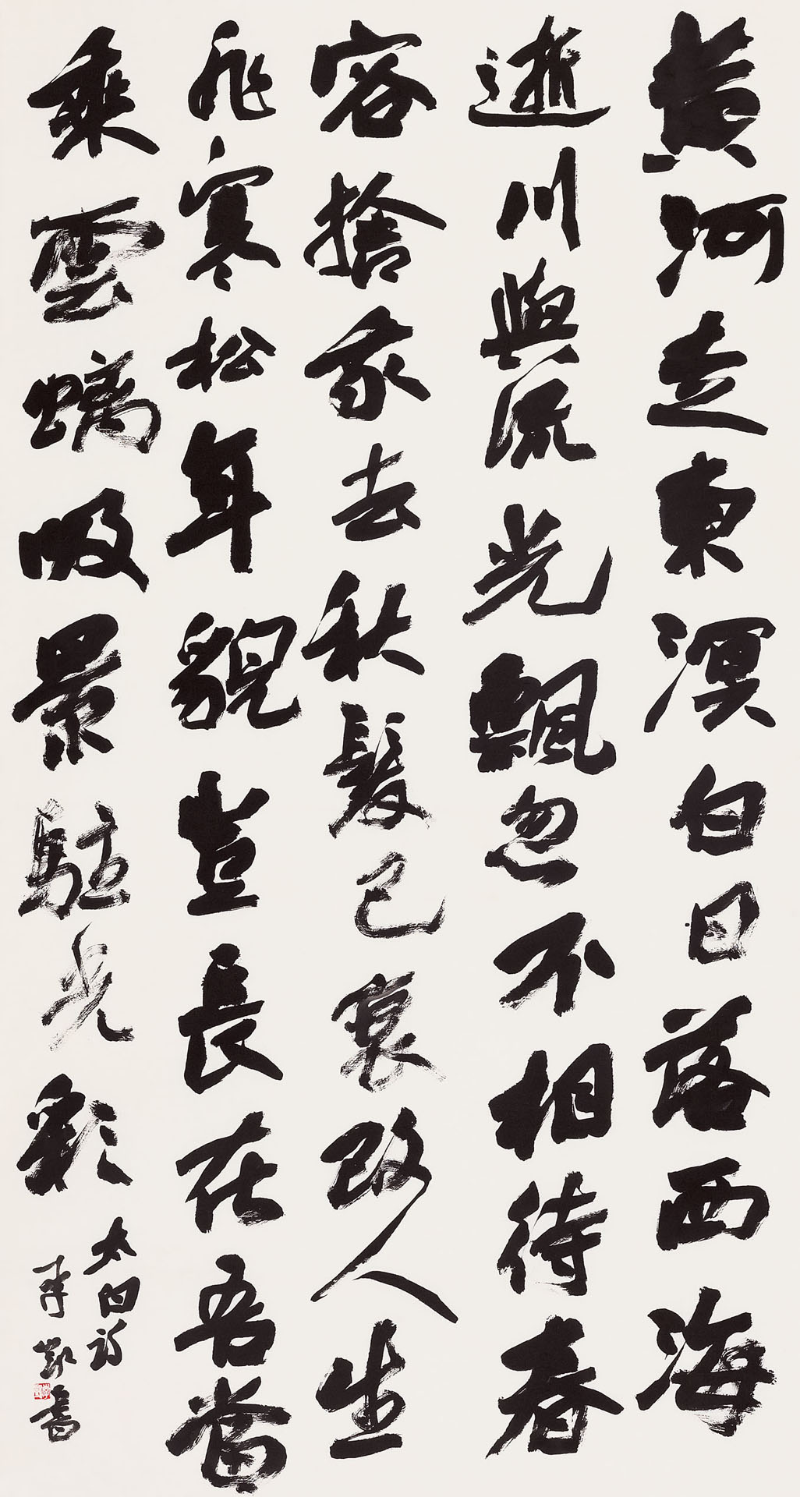 黄河走東溟白日落西海
逝川與流光飄忽不相待春
容捨我去秋髮已衰改人生
非寒松年貌豈長在吾當
乘雲螭吸景駐光彩
太白詩